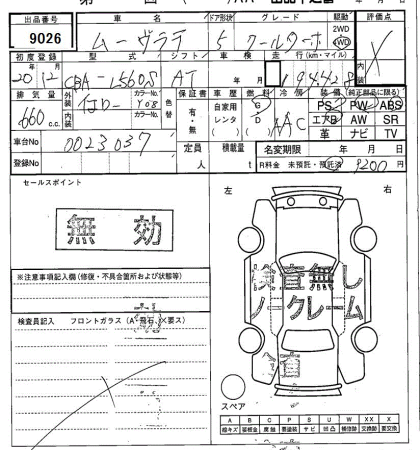 出品番号 車名 ドア形状 グレード 駆動 評価点
9026 ムーヴラテ 5 クールターボ 2WD 4WD X
初度登録 型式 シフト 車検 走行(km・マイル)
20年12月 CBA-L560S AT 94428
排気量 外装 カラーNo. 色替 保証書 車歴 燃料 冷房 装備(純正部品に限る)
660 c.c. 内装 カラーNo. Y08 有・無 自家用 レンタ G D AAC PS PW ABS
エアB AW SR
革 ナビ TV
車台No 0023037 定員 人 積載量 t 名変期限 年 月 日
登録No R料金 未預託・預託済 9200円
セールスポイント 左 右
無効
検査無し
ノークレーム
※注意事項記入欄(修復・不具合箇所および状態等)
検査員記入 フロントガラス(A・飛石・X要ス)
スペア
A B C P S U W X XX
線キズ 板金 腐食 要塗装 サビ 凹凸 補修跡 交換跡 要交換